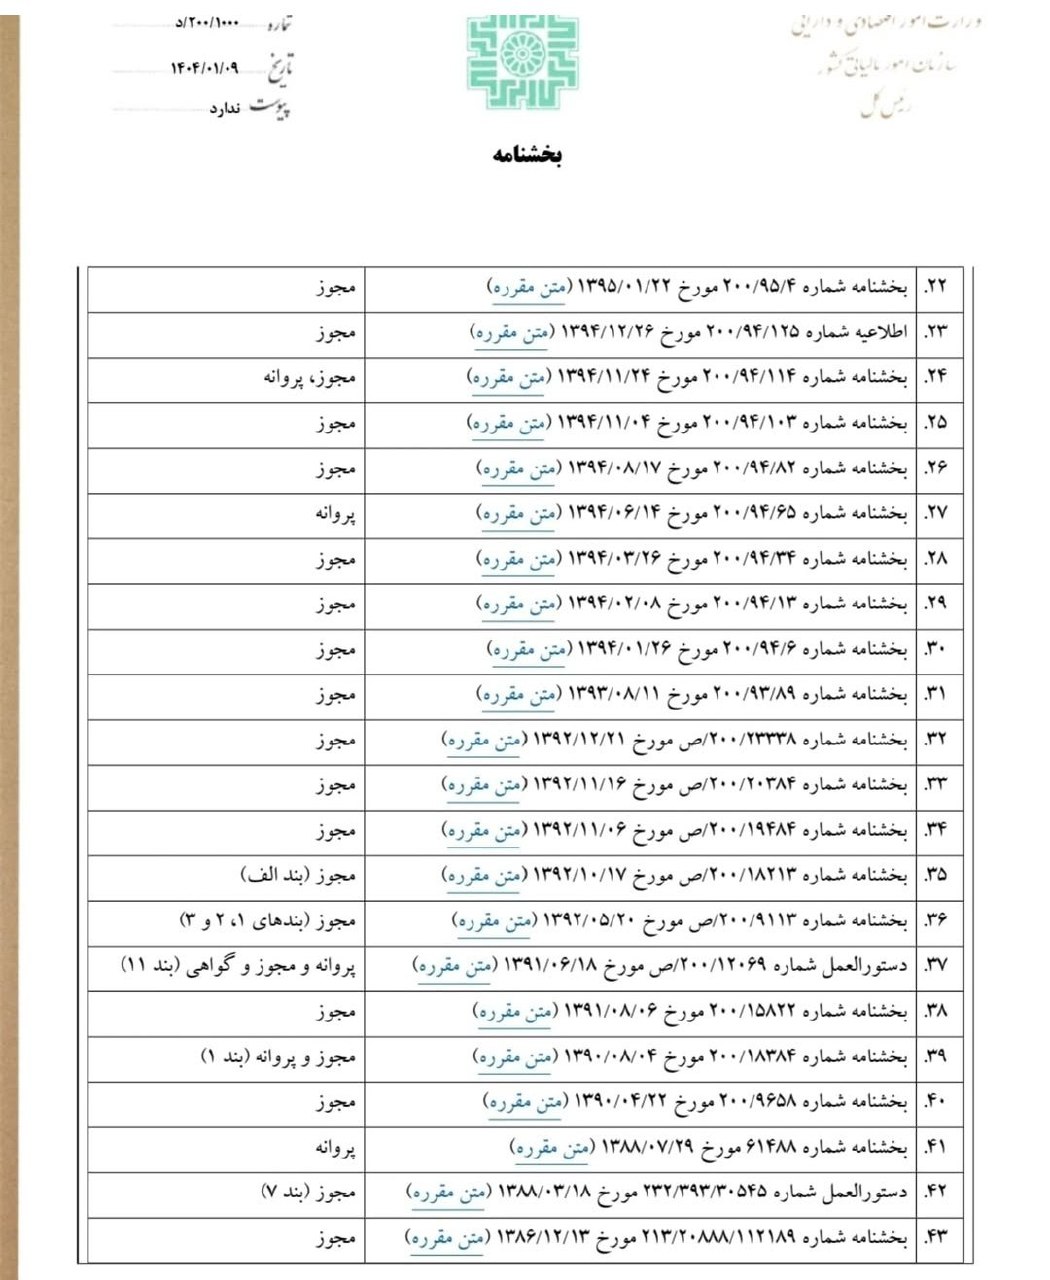 وزارت امور اقتصادی و دارایی
سازمان امور مالیاتی کشور
رئیس کل
شماره ۲۰۰/۱۰۰۰/د
تاریخ ۱۴۰۴/۰۱/۰۹
پیوست ندارد
بخشنامه
۲۲. بخشنامه شماره ۲۰۰/۹۵/۴ مورخ ۱۳۹۵/۰۱/۲۲ (متن مقرره) مجوز
۲۳. اطلاعیه شماره ۲۰۰/۹۴/۱۲۵ مورخ ۱۳۹۴/۱۲/۲۶ (متن مقرره) مجوز
۲۴. بخشنامه شماره ۲۰۰/۹۴/۱۱۴ مورخ ۱۳۹۴/۱۱/۲۴ (متن مقرره) مجوز، پروانه
۲۵. بخشنامه شماره ۲۰۰/۹۴/۱۰۳ مورخ ۱۳۹۴/۱۱/۰۴ (متن مقرره) مجوز
۲۶. بخشنامه شماره ۲۰۰/۹۴/۸۲ مورخ ۱۳۹۴/۰۸/۱۷ (متن مقرره) مجوز
۲۷. بخشنامه شماره ۲۰۰/۹۴/۶۵ مورخ ۱۳۹۴/۰۶/۱۴ (متن مقرره) پروانه
۲۸. بخشنامه شماره ۲۰۰/۹۴/۳۴ مورخ ۱۳۹۴/۰۳/۲۶ (متن مقرره) مجوز
۲۹. بخشنامه شماره ۲۰۰/۹۴/۱۳ مورخ ۱۳۹۴/۰۲/۰۸ (متن مقرره) مجوز
۳۰. بخشنامه شماره ۲۰۰/۹۴/۶ مورخ ۱۳۹۴/۰۱/۲۶ (متن مقرره) مجوز
۳۱. بخشنامه شماره ۲۰۰/۹۳/۸۹ مورخ ۱۳۹۳/۰۸/۱۱ (متن مقرره) مجوز
۳۲. بخشنامه شماره ۲۰۰/۲۳۳۳۸/ص مورخ ۱۳۹۲/۱۲/۲۱ (متن مقرره) مجوز
۳۳. بخشنامه شماره ۲۰۰/۲۰۳۸۴/ص مورخ ۱۳۹۲/۱۱/۱۶ (متن مقرره) مجوز
۳۴. بخشنامه شماره ۲۰۰/۱۹۴۸۴/ص مورخ ۱۳۹۲/۱۱/۰۶ (متن مقرره) مجوز
۳۵. بخشنامه شماره ۲۰۰/۱۸۲۱۳/ص مورخ ۱۳۹۲/۱۰/۱۷ (متن مقرره) مجوز (بند الف)
۳۶. بخشنامه شماره ۲۰۰/۹۱۱۳/ص مورخ ۱۳۹۲/۰۵/۲۰ (متن مقرره) مجوز (بندهای ۱، ۲ و ۳)
۳۷. دستورالعمل شماره ۲۰۰/۱۲۰۶۹/ص مورخ ۱۳۹۱/۰۶/۱۸ (متن مقرره) پروانه و مجوز و گواهی (بند ۱۱)
۳۸. بخشنامه شماره ۲۰۰/۱۵۸۲۲ مورخ ۱۳۹۱/۰۸/۰۶ (متن مقرره) مجوز
۳۹. بخشنامه شماره ۲۰۰/۱۸۳۸۴ مورخ ۱۳۹۰/۰۸/۰۴ (متن مقرره) مجوز و پروانه (بند ۱)
۴۰. بخشنامه شماره ۲۰۰/۹۶۵۸ مورخ ۱۳۹۰/۰۴/۲۲ (متن مقرره) مجوز
۴۱. بخشنامه شماره ۶۱۴۸۸ مورخ ۱۳۸۸/۰۷/۲۹ (متن مقرره) پروانه
۴۲. دستورالعمل شماره ۲۳۲/۳۹۳/۳۰۵۴۵ مورخ ۱۳۸۸/۰۳/۱۸ (متن مقرره) مجوز (بند ۷)
۴۳. بخشنامه شماره ۲۱۳/۲۰۸۸۸/۱۱۲۱۸۹ مورخ ۱۳۸۶/۱۲/۱۳ (متن مقرره) مجوز